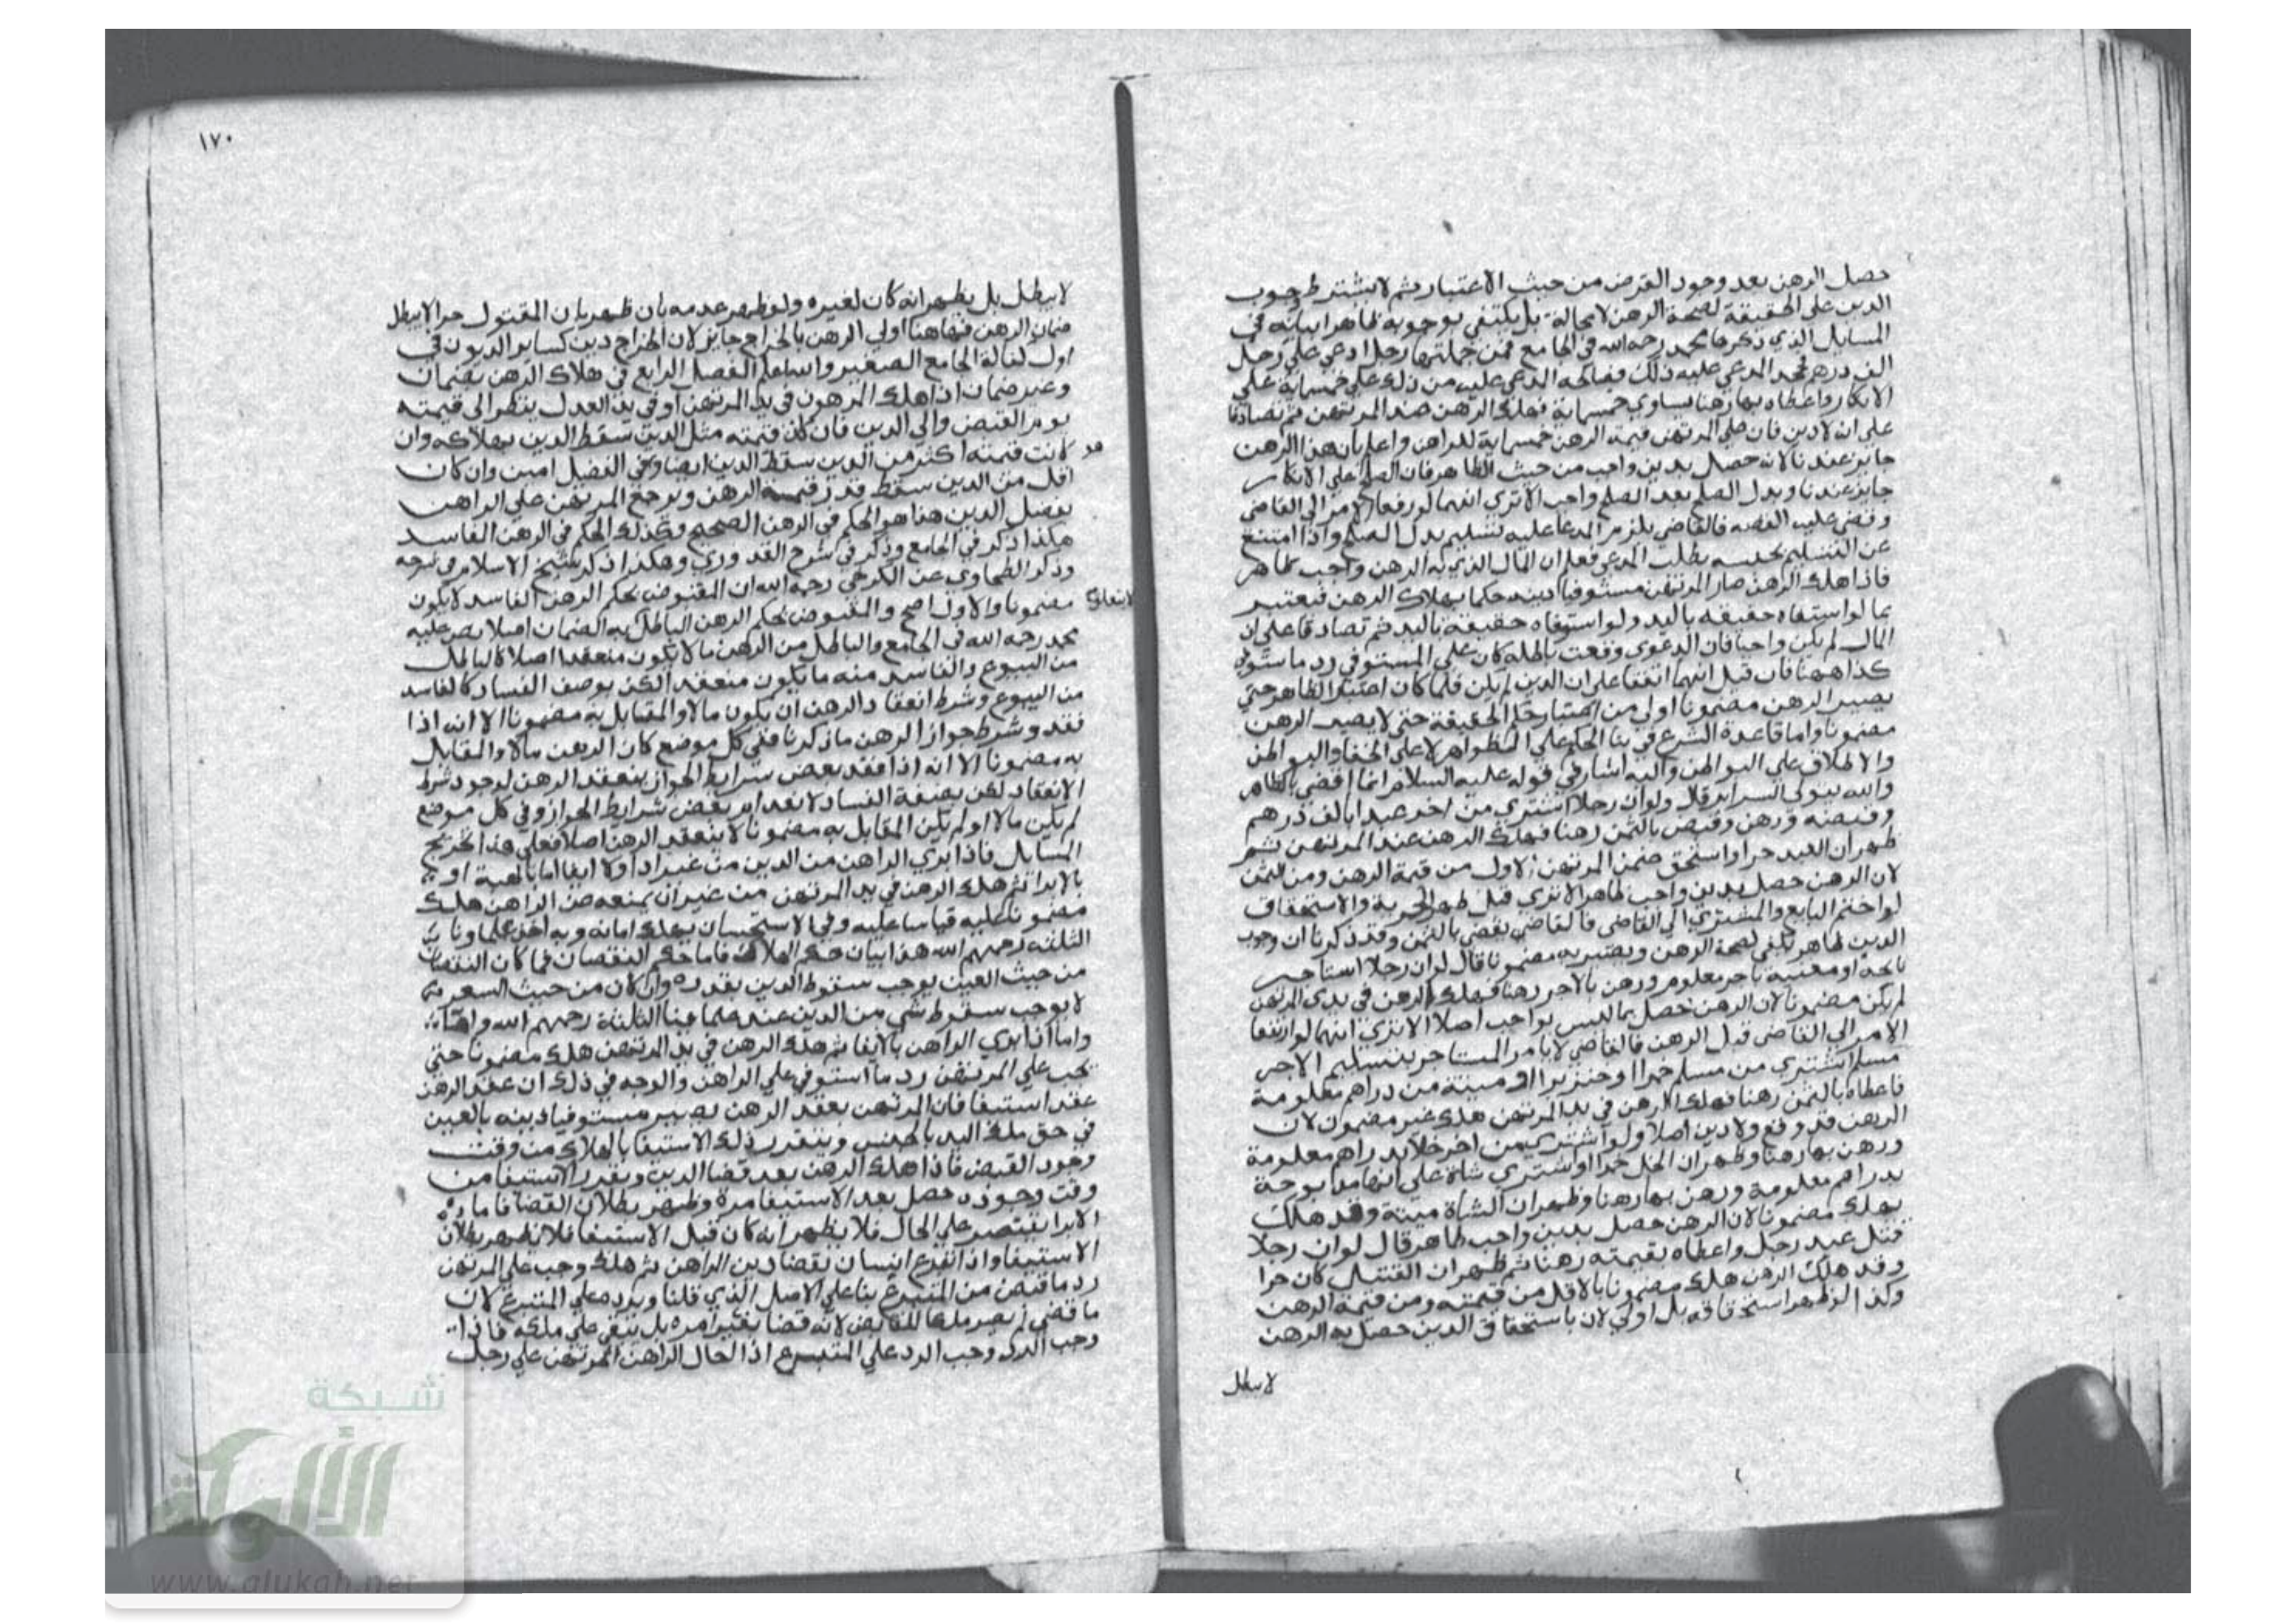 حصل الرهن بعد وجود القرض من حيث الاعتبار ثم لا يشترط وجوب
الدين على الحقيقة لصحة الرهن لا محالة بل يكتفي بوجوبه ظاهرا بيانه في
المسايل الذي ذكرها محمد رحمه الله في الجامع فمن جملتها رجل ادعي علي رجل
الف درهم فجحد المدعي عليه ذلك فصالحه المدعي عليه من ذلك علي خمسماية علي
الانكار واعطاه بها رهنا يساوي خمسماية فهلك الرهن عند المرتهن ثم تصادقا
علي ان لا دين فان علي المرتهن قيمة الرهن خمسماية للراهن واعلم بان هذا الرهن
جايز عندنا لانه حصل بدين واجب من حيث الظاهر فان الصلح علي الانكار
جايز عندنا وبدل الصلح بعد الصلح واجب الا تري انهما لو رفعا الامر الي القاضي
وقضي عليه القصه فالقاضي يلزم المدعا عليه تسليم بدل الصلح واذا امتنع
عن التسليم يحبسه بطلب المدعي فعلم ان المال الذي به الرهن واجب ظاهر
فاذا هلك الرهن صار المرتهن مستوفيا دينه حكما بهلاك الرهن فيعتبر
بما لو استفاه حقيقه باليد ولو استوفاه حقيقة باليد ثم تصادقا علي ان
المال لم يكن واجبا فان الدعوي وقعت باطله كان علي المستوفي رد ما استوفي
كذا ههنا فان قيل انهما اتفقا علي ان الدين لم يكن فلما كان اعتبار الظاهر حتي
يصير الرهن مضمونا اولي من اعتبار حكم الحقيقة حتي لا يصير الرهن
مضمونا واما قاعدة الشرع في بنا الحكم علي الظواهر لا علي الخفا والبواطن
والاطلاق علي البواطن واليه اشار في قوله عليه السلام انما اقضي بالظاهر
والله يتولي السراير قال ولو ان رجلا اشتري من اخر عبدا بالف درهم
وقبضه ورهن وقبض بالثمن رهنا فهلك الرهن عند المرتهن ثم
ظهر ان العبد حر او استحق ضمن المرتهن الاول من قيمة الرهن ومن الثمن
لان الرهن حصل بدين واجب ظاهرا الا تري قبل ظهور الحرية والاستحقاق
لو اختصم البايع والمشتري الي القاضي فالقاضي يقضي بالثمن وقد ذكرنا ان وجوب
الدين ظاهر يكفي لصحة الرهن ويصير به مضمونا قال لو ان رجلا استاجر
نايحة او مغنية باجر معلوم ورهن بالاجر رهنا فهلك الرهن في يدي المرتهن
لم يكن مضمونا لان الرهن حصل بما ليس بواجب اصلا الا تري انهما لو ارتفعا
الامر الي القاضي قبل الرهن فالقاضي لا يامر المستاجر بتسليم الاجر
مسلم اشتري من مسلم خمرا او خنزيرا او ميتة من دراهم معلومة
فاعطاه بالثمن رهنا فهلك الرهن في يد المرتهن هلك غير مضمون لان
الرهن قد وقع ولا دين اصلا ولو اشتري من اخر خلا بدراهم معلومة
ورهن بها رهنا وظهر ان الخل خمرا او اشتري شاة علي انها مذبوحة
بدراهم معلومة ورهن بها رهنا وظهر ان الشاة ميتة وقد هلك
يهلك مضمونا لان الرهن حصل بدين واجب ظاهر قال لو ان رجلا
قتل عبد رجل واعطاه بقيمته رهنا ثم ظهر ان القتيل كان حرا
وقد هلك الرهن هلك مضمونا بالاقل من قيمته ومن قيمة الرهن
وكذا لو ظهر استحقاقه بل اولي لان باستحقاق الدين حصل به الرهن
لا يبطل
١٧٠
لا يبطل بل يظهر انه كان لغيره ولو ظهر عدمه بان ظهر بان المقتول حر الا يبطل
ضمان الرهن فهاهنا اولي الرهن بالخراج جايز لان الخراج دين كساير الديون في
اول كفالة الجامع الصغير والله اعلم الفصل الرابع في هلاك الرهن بضمان
وغير ضمان اذا هلك المرهون في يد المرتهن او في يد العدل ينظر الي قيمته
يوم القبض والي الدين فان كان قيمته مثل الدين سقط الدين بهلاكه وان
كانت قيمته اكثر من الدين سقط الدين ايضا وفي الفضل امين وان كان
اقل من الدين سقط قدر قيمة الرهن ويرجع المرتهن علي الراهن
بفضل الدين هذا هو الحكم في الرهن الصحيح وكذلك الحكم في الرهن الفاسد
هكذا ذكر في الجامع وذكر في شرح القدوري وهكذا ذكر شيخ الاسلام في شرحه
وذكر الطحاوي عن الكرخي رحمه الله ان المقبوض بحكم الرهن الفاسد لا يكون
مضمونا والاول اصح والمقبوض بحكم الرهن الباطل به الضمان اصلا نص عليه
لا يتعلق
محمد رحمه الله في الجامع والباطل من الرهن ما لا يكون منعقدا اصلا كالباطل
من البيوع والفاسد منه ما يكون منعقدا لكن بوصف الفساد كالفاسد
من البيوع وشرط انعقاد الرهن ان يكون مالا والمقابل به مضمونا الا انه اذا
فقد وشرط جواز الرهن ما ذكرنا ففي كل موضع كان الرهن مالا والمقابل
به مضمونا الا انه اذا فقد بعض شرايط الجواز ينعقد الرهن لوجود شرط
الانعقاد لكن بصفة الفساد لانعدام بعض شرايط الجواز وفي كل موضع
لم يكن مالا او لم يكن المقابل به مضمونا لا ينعقد الرهن اصلا فعلي هذا تخرج
المسايل فاذا بري الراهن من الدين من غير اداء ولا ايفا اما بالهبة او
بالابرا ثم هلك الرهن في يد المرتهن من غير ان يمنعه من الراهن هلك
مضمونا عليه قياسا عليه وفي الاستحسان يهلك امانه وبه اخذ علماونا
الثلثه رحمهم الله هذا بيان حكم الهلاك فاما حكم النقصان فما كان النقصان
من حيث العين يوجب سقوط الدين بقدره وان كان من حيث السعر
لا يوجب سقوط شي من الدين عند علماينا الثلثة رحمهم الله
واما اذا بري الراهن بالايفا ثم هلك الرهن في يد المرتهن هلك مضمونا حتي
يجب علي المرتهن رد ما استوفي علي الراهن والوجه في ذلك ان عقد الرهن
عقد استيفا فان المرتهن بعقد الرهن يصير مستوفيا دينه بالعين
في حق ملك اليد بالحبس ويتقرر ذلك الاستيفا بالهلاك من وقت
وجود القبض فاذا هلك الرهن بعد قضا الدين وتقرر الاستيفا من
وقت وجوده حصل بعد الاستيفا مرة وظهر بطلان القضا فاما
الابرا يقتصر علي الحال فلا يظهر انه كان قبل الاستيفا فلا يظهر بطلان
الاستيفا واذا تبرع انسان بقضا دين الراهن ثم هلك وجب علي المرتهن
رد ما قبض من المتبرع بنا علي الاصل الذي قلنا ويرده علي المتبرع لان
ما قضي لم يصر ملكا للقابض لانه قضا بغير امره بل بقي علي ملكه فاذا
وجب الرد وجب الرد علي المتبرع اذا احال الراهن المرتهن علي رجل
شبكة
الألوكة
www.alukah.net